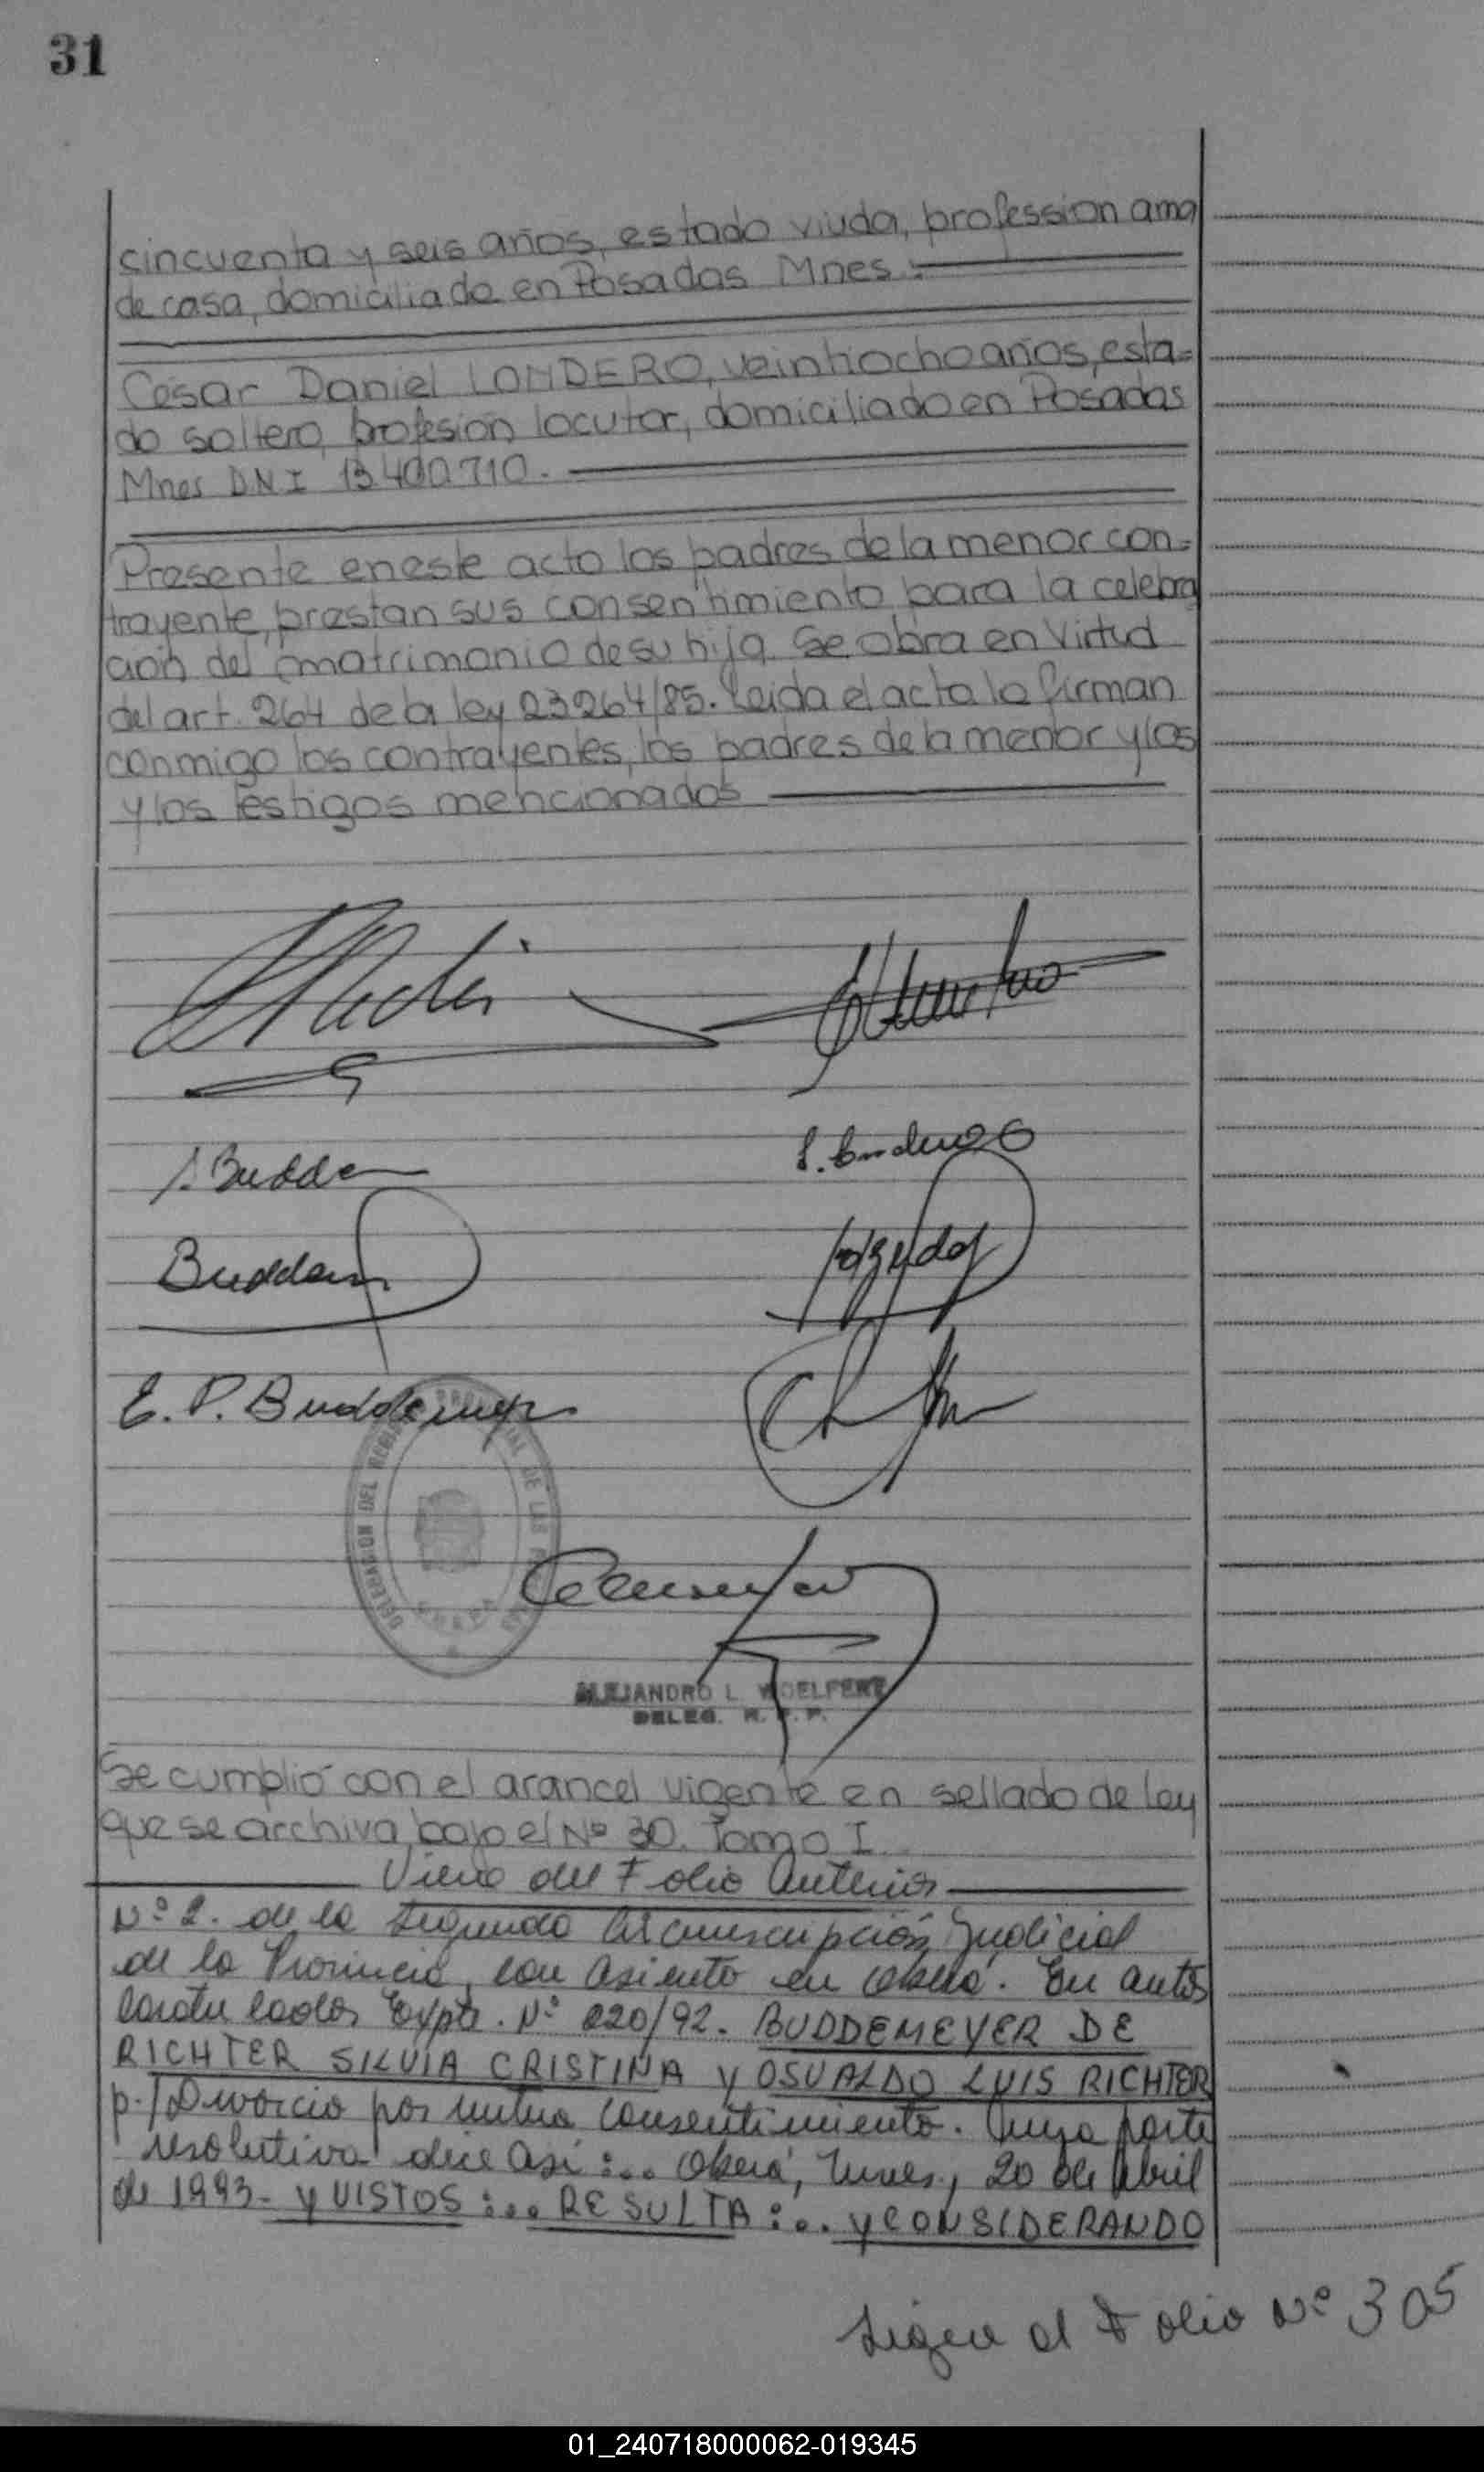 31
cincuenta y seis años, estado viuda, profession ama
de casa, domiciliada en Posadas Mnes.
César Daniel LONDERO, veintiocho años, esta=
do soltero, profesión locutor, domiciliado en Posadas
Mnes D.N.I 13.400.710.
Presente en este acto los padres de la menor con=
trayente, prestan sus consentimiento para la celebra
ción del matrimonio de su hija. Se obra en Virtud
del art. 264 de la ley 23264/85. Leida el acta la firman
conmigo los contrayentes, los padres de la menor y los
y los testigos mencionados
Buddem
E. P. Buddemeyer
DELEGACION DEL REGISTRO PROVINCIAL DE LAS PERSONAS
OBERA
ALEJANDRO L. WOELFERT
DELEG. R. P. P.
Se cumplió con el arancel vigente en sellado de Ley
que se archiva bajo el Nº 30. Tomo I
Viene del Folio Anterior
Nº 2. de la Segunda Circunscripción Judicial
de la Provincia, con Asiento en Oberá. En autos
caratulados Expte. Nº 220/92. BUDDEMEYER DE
RICHTER SILVIA CRISTINA y OSVALDO LUIS RICHTER
p./Divorcio por mutuo consentimiento. Cuya parte
resolutiva dice Así:... Oberá, Mnes., 20 de Abril
de 1993- y VISTOS:... RESULTA:... y CONSIDERANDO
Sigue al Folio Nº 305
01_240718000062-019345